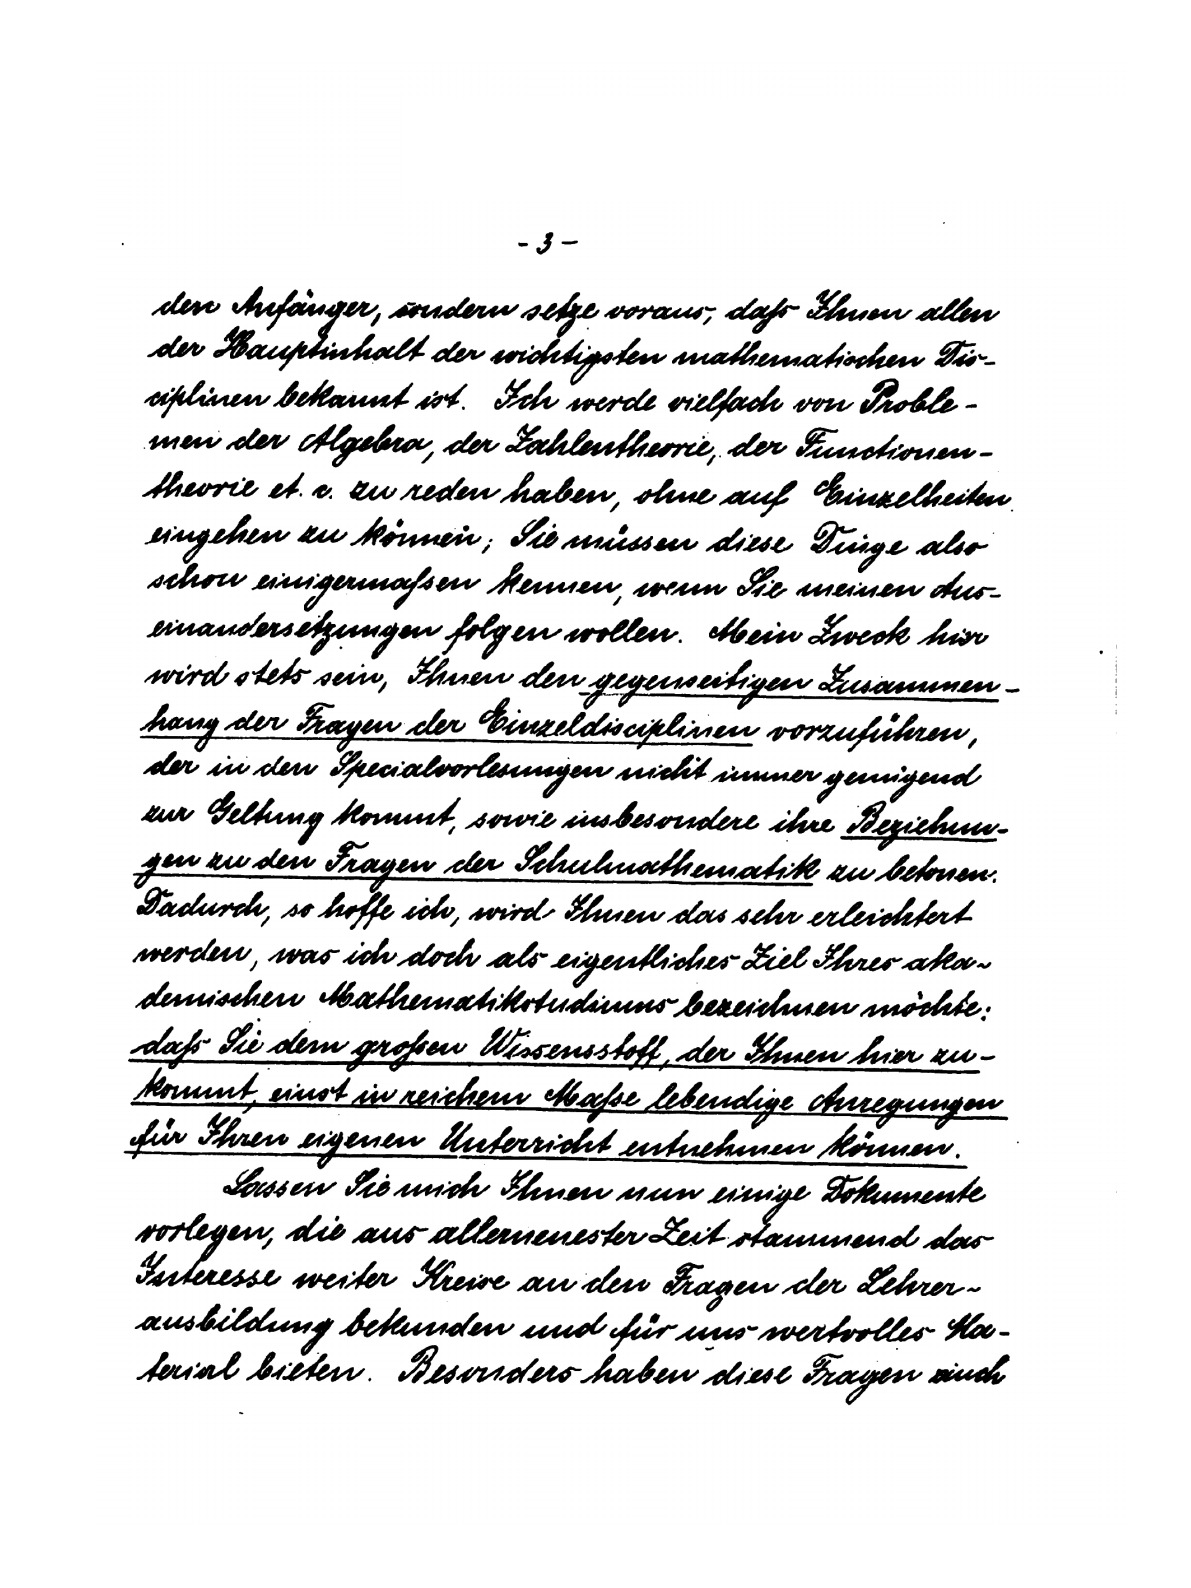 - 3 -
den Anfänger, sondern setze voraus, daß Ihnen allen
der Hauptinhalt der wichtigsten mathematischen Dis-
ciplinen bekannt ist. Ich werde vielfach von Proble-
men der Algebra, der Zahlentheorie, der Functionen-
theorie et. c. zu reden haben, ohne auf Einzelheiten
eingehen zu können; Sie müssen diese Dinge also
schon einigermaßen kennen, wenn Sie meinen Aus-
einandersetzungen folgen wollen. Mein Zweck hier
wird stets sein, Ihnen den gegenseitigen Zusammen-
hang der Fragen der Einzeldisciplinen vorzuführen,
der in den Specialvorlesungen nicht immer genügend
zur Geltung kommt, sowie insbesondere ihre Beziehun-
gen zu den Fragen der Schulmathematik zu betonen.
Dadurch, so hoffe ich, wird Ihnen das sehr erleichtert
werden, was ich doch als eigentliches Ziel Ihres aka-
demischen Mathematikstudiums bezeichnen möchte:
daß Sie dem großen Wissensstoff, der Ihnen hier zu-
kommt, einst in reichem Maße lebendige Anregungen
für Ihren eigenen Unterricht entnehmen können.
Lassen Sie mich Ihnen nun einige Dokumente
vorlegen, die aus allerneuester Zeit stammend das
Interesse weiter Kreise an den Fragen der Lehrer-
ausbildung bekunden und für uns wertvolles Ma-
terial bieten. Besonders haben diese Fragen auch